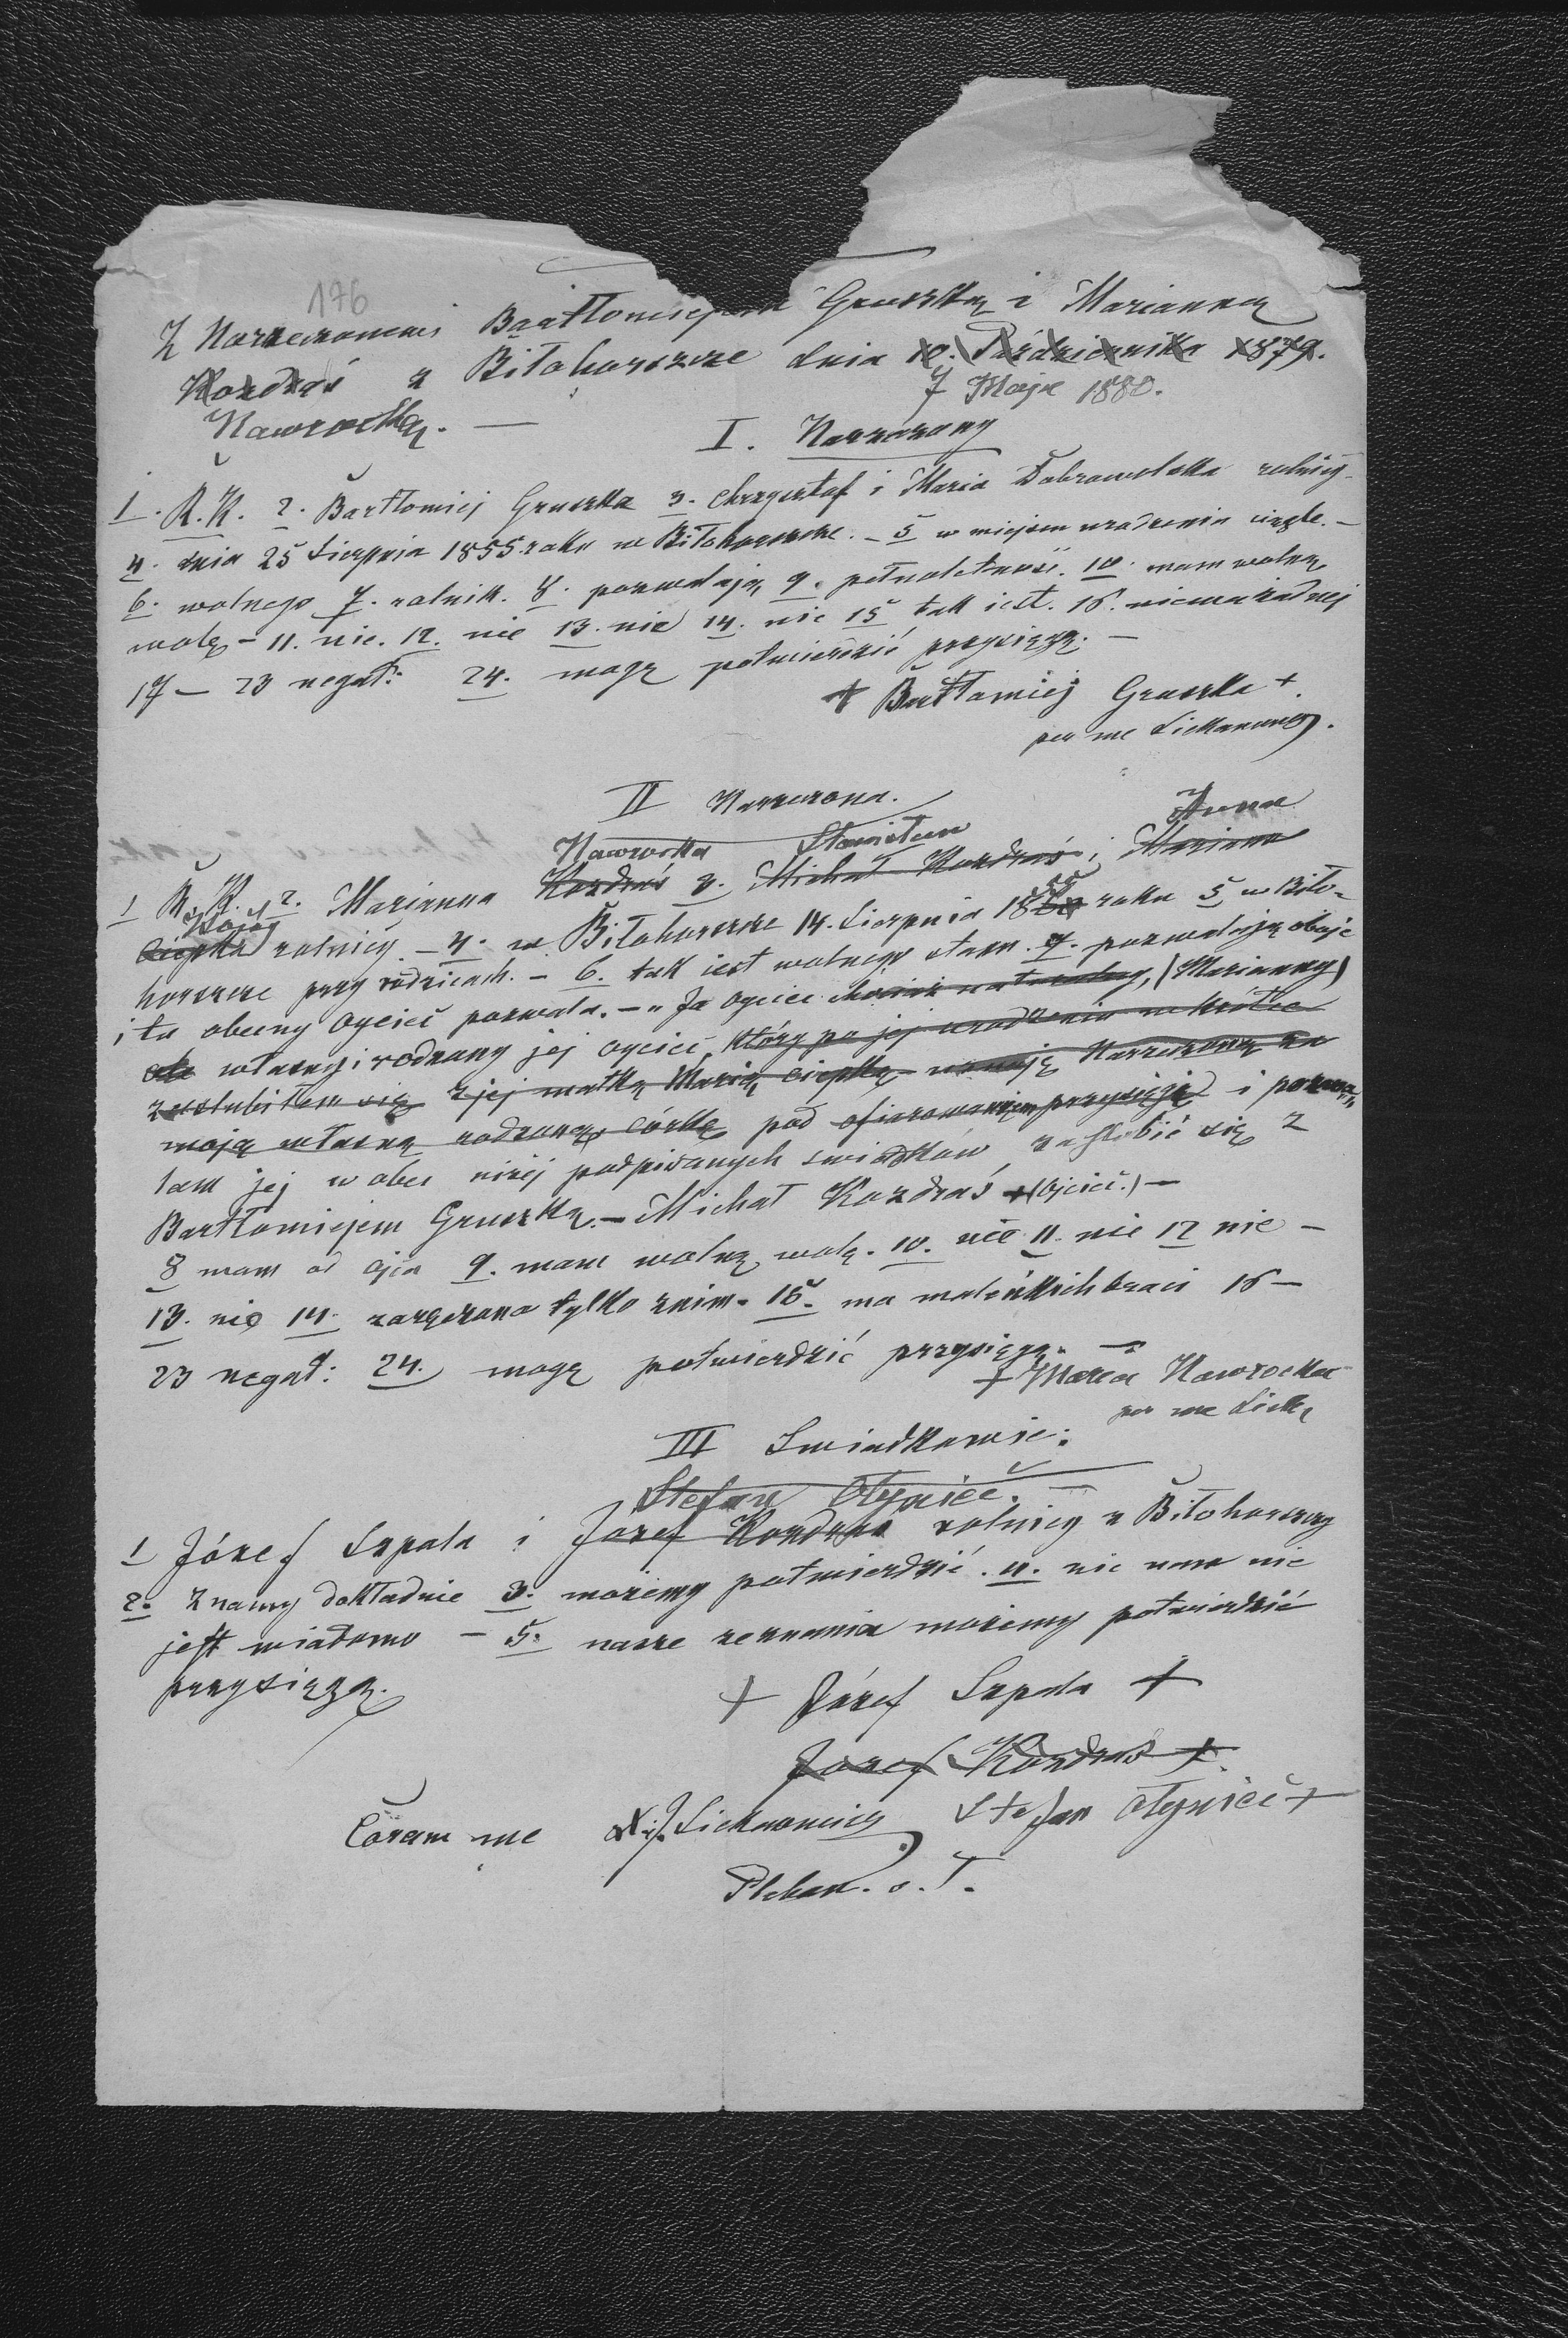 176
Z Narzeczonemi Bartłomiejem Gruszką i Marianną
Kozdraś z Biłohorszcze dnia 10. Października 1879.
7 Maja 1880.
Nawrocką. —
I. Narzeczony
1. R. K. 2. Bartłomiej Gruszka 3. Chrzysztof i Maria Dobrowolska rolnicy.
4. dnia 25 Sierpnia 1855 roku w Biłohorszcze. – 5 w miejscu urodzenia ciągle. –
6. wolnego 7. rolnik. 8. pozwalają 9. pełnoletność. 10. mam wolną
wolę – 11. nie. 12. nie 13. nie 14. nie 15 tak jest. 16. niema żadnej
17 – 23 negat: 24. mogę potwierdzić przysięgą. —
+ Bartłomiej Gruszka +.
per me
II Narzeczona.
Nawrocka Stanisław Anna
1 R. K. 2. Marianna Kozdraś 3. Michał Kozdraś i Marianna
Ciepka rolnicy. – 4. w Biłohorszcze 14. Sierpnia 18 roku 5 w Biło-
horszcze przy rodzicach. – 6. tak jest wolnego stanu. 7. pozwalają oboje
i tu obecny Ojciec pozwala. – „Ja Ojciec (Marianny)
ale własny i rodzony jej Ojciec, który po jej urodzeniu w krótce
zaślubiłem się z jej matką Marią Ciepką – uznaję Narzeczoną za
moją własną rodzoną córkę pod ofiarowaniem przysięgi i pozwa-
lam jej w obec niżej podpisanych świadków zaślubić się z
Bartłomiejem Gruszką. – Michał Kozdraś + (Ojciec.) –
8 mam od Ojca 9. mam wolną wolę. 10. nie 11. nie 12 nie –
13. nie 14. zaręczona tylko z nim. 15. ma maleńkich braci 16 –
23 negat: 24. mogę potwierdzić przysięgą. —
+ Maria Nawrocka
per me
III Swiadkowie:
Stefan Olejnicč.
1 Józef Szpala i Józef Kozdraś rolnicy z Biłohorszczy
2. Znamy dokładnie 3. możemy potwierdzić. 4. nic nam nie
jest wiadomo – 5. nasze zeznania możemy potwierdzić
przysięgą.
+ Józef Szpala +
Józef Kozdraś +.
Stefan Olejnicč +
Coram me
Pleban. o. T.